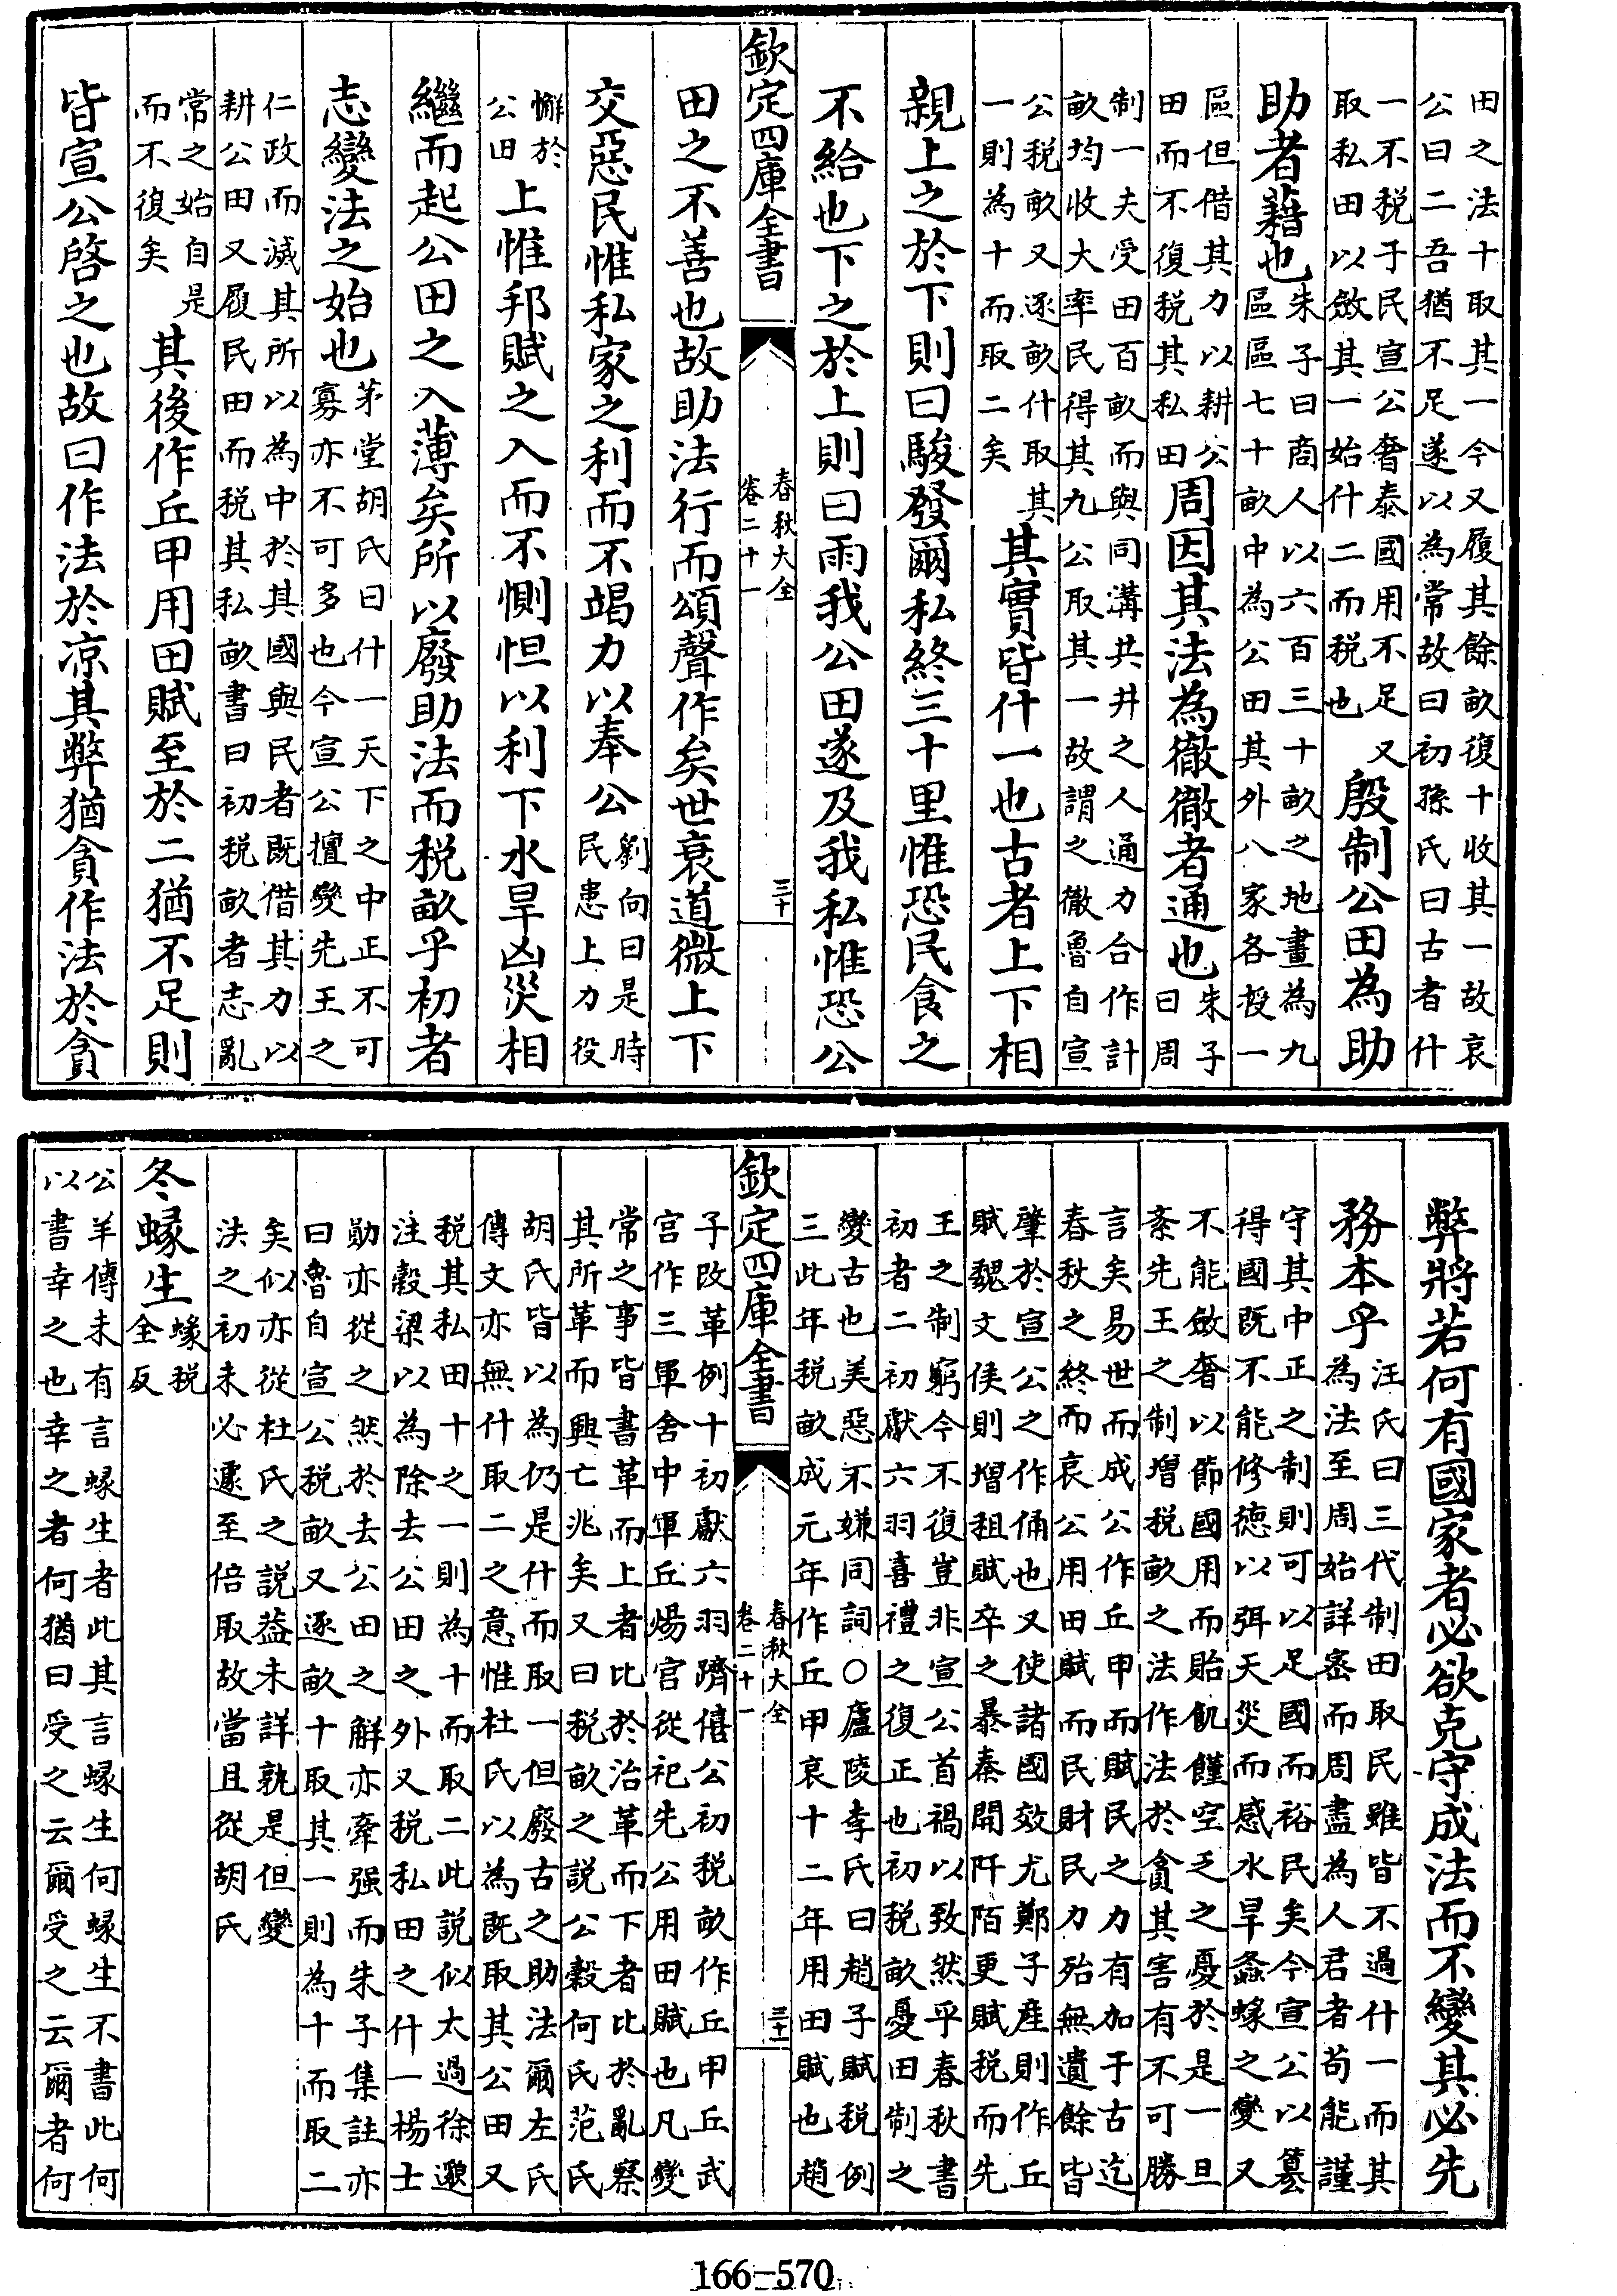 田之法十取其一今又履其餘畝復十收其一故哀
公曰二吾猶不足遂以為常故曰初孫氏曰古者什
一不税于民宣公奢泰國用不足又
取私田以斂其一始什二而税也
殷制公田為助
助者藉也
朱子曰商人以六百三十畝之地畫為九
區區七十畝中為公田其外八家各授一
區但借其力以耕公
田而不復税其私田
周因其法為徹徹者通也
朱子
曰周
制一夫受田百畝而與同溝共井之人通力合作計
畝均收大率民得其九公取其一故謂之徹魯自宣
公税畝又逐畝什取其
一則為十而取二矣
其實皆什一也古者上下相
親上之於下則曰駿發爾私終三十里惟恐民食之
不給也下之於上則曰雨我公田遂及我私惟恐公
欽定四庫全書
春秋大全
卷二十一
三十
田之不善也故助法行而頌聲作矣世衰道微上下
交惡民惟私家之利而不竭力以奉公
劉向曰是時
民患上力役
懈於
公田
上惟邦賦之入而不惻怛以利下水旱凶災相
繼而起公田之入薄矣所以廢助法而税畝乎初者
志變法之始也
茅堂胡氏曰什一天下之中正不可
寡亦不可多也今宣公擅變先王之
仁政而滅其所以為中於其國與民者既借其力以
耕公田又履民田而税其私畝書曰初税畝者志亂
常之始自是
而不復矣
其後作丘甲用田賦至於二猶不足則
皆宣公啓之也故曰作法於凉其弊猶貪作法於貪
弊將若何有國家者必欲克守成法而不變其必先
務本乎
汪氏曰三代制田取民雖皆不過什一而其
為法至周始詳宻而周盡為人君者苟能謹
守其中正之制則可以足國而裕民矣今宣公以簒
得國既不能修徳以弭天災而感水旱螽蝝之變又
不能斂奢以節國用而貽飢饉空乏之憂於是一旦
紊先王之制增税畝之法作法於貪其害有不可勝
言矣易世而成公作丘甲而賦民之力有加于古迄
春秋之終而哀公用田賦而民財民力殆無遺餘皆
肇於宣公之作俑也又使諸國效尤鄭子産則作丘
賦魏文侯則增租賦卒之暴秦開阡陌更賦税而先
王之制窮今不復豈非宣公首禍以致然乎春秋書
初者二初獻六羽喜禮之復正也初税畝憂田制之
變古也美惡不嫌同詞○廬陵李氏曰趙子賦税例
三此年税畝成元年作丘甲哀十二年用田賦也趙
欽定四庫全書
春秋大全
卷二十一
三十一
子改革例十初獻六羽躋僖公初税畝作丘甲丘武
宫作三軍舍中軍丘煬宫從祀先公用田賦也凡變
常之事皆書革而上者比於治革而下者比於亂察
其所革而興亡兆矣又曰税畝之説公榖何氏范氏
胡氏皆以為仍是什而取一但廢古之助法爾左氏
傳文亦無什取二之意惟杜氏以為既取其公田又
税其私田十之一則為十而取二此説似太過徐邈
注榖梁以為除去公田之外又税私田之什一楊士
勛亦從之然於去公田之解亦牽强而朱子集註亦
曰魯自宣公税畝又逐畝十取其一則為十而取二
矣似亦從杜氏之説葢未詳孰是但變
法之初未必遽至倍取故當且從胡氏
冬蝝生
蝝税
全反
公羊傳未有言蝝生者此其言蝝生何蝝生不書此何
以書幸之也幸之者何猶曰受之云爾受之云爾者何
166-570